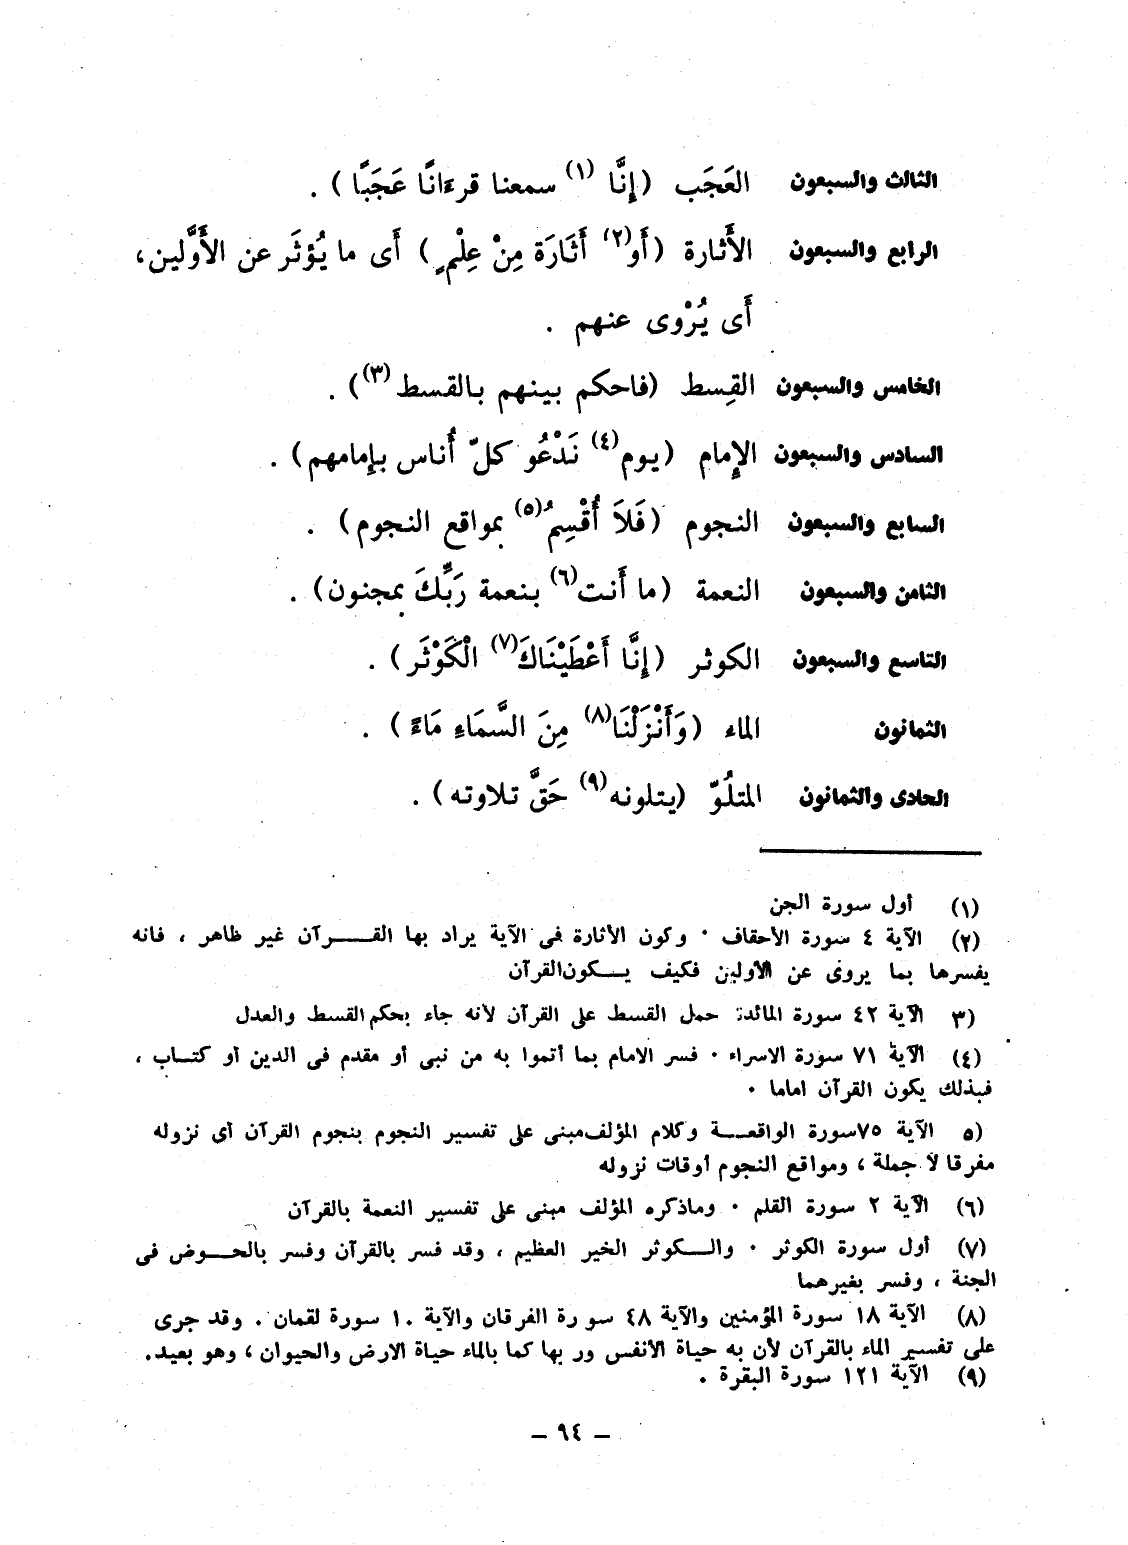 الثالث والسبعون العَجَب (إِنَّا (١) سمعنا قرءَانًا عَجَبًا) .
الرابع والسبعون الأَثارة (أَو(٢) أَثَارَة مِنْ عِلْمٍ) أَى ما يُؤثَر عن الأَوَّلين،
أَى يُرْوى عنهم .
الخامس والسبعون القِسط (فاحكم بينهم بالقسط(٣)) .
السادس والسبعون الإِمام (يوم(٤) نَدْعُو كلّ أُناس بإِمامهم) .
السابع والسبعون النجوم (فَلَا أُقْسِمُ(٥) بمواقع النجوم) .
الثامن والسبعون النعمة (ما أَنت(٦) بنعمة رَبِّكَ بمجنون) .
التاسع والسبعون الكوثر (إِنَّا أَعْطَيْنَاكَ(٧) الْكَوْثَر) .
الثمانون الماء (وَأَنْزَلْنَا(٨) مِنَ السَّمَاءِ مَاءً) .
الحادى والثمانون المتلُوّ (يتلونه(٩) حَقَّ تلاوته) .
(١) أول سورة الجن
(٢) الآية ٤ سورة الأحقاف ٠ وكون الأثارة فى الآية يراد بها القـــرآن غير ظاهر ، فانه
يفسرها بما يروى عن الأولين فكيف يــكون القرآن
٣) الآية ٤٢ سورة المائدة حمل القسط على القرآن لأنه جاء بحكم القسط والعدل
(٤) الآية ٧١ سورة الاسراء ٠ فسر الامام بما أتموا به من نبى أو مقدم فى الدين أو كتــاب ،
فبذلك يكون القرآن اماما ٠
٥) الآية ٧٥ سورة الواقعــة وكلام المؤلف مبنى على تفسير النجوم بنجوم القرآن أى نزوله
مفرقا لا جملة ، ومواقع النجوم أوقات نزوله
(٦) الآية ٢ سورة القلم ٠ وماذكره المؤلف مبنى على تفسير النعمة بالقرآن
(٧) أول سورة الكوثر ٠ والــكوثر الخير العظيم ، وقد فسر بالقرآن وفسر بالحــوض فى
الجنة ، وفسر بغيرهما
(٨) الآية ١٨ سورة المؤمنين والآية ٤٨ سورة الفرقان والآية ١٠ سورة لقمان . وقد جرى
على تفسير الماء بالقرآن لأن به حياة الأنفس ور بها كما بالماء حياة الارض والحيوان ، وهو بعيد.
(٩) الآية ١٢١ سورة البقرة .
– ٩٤ –